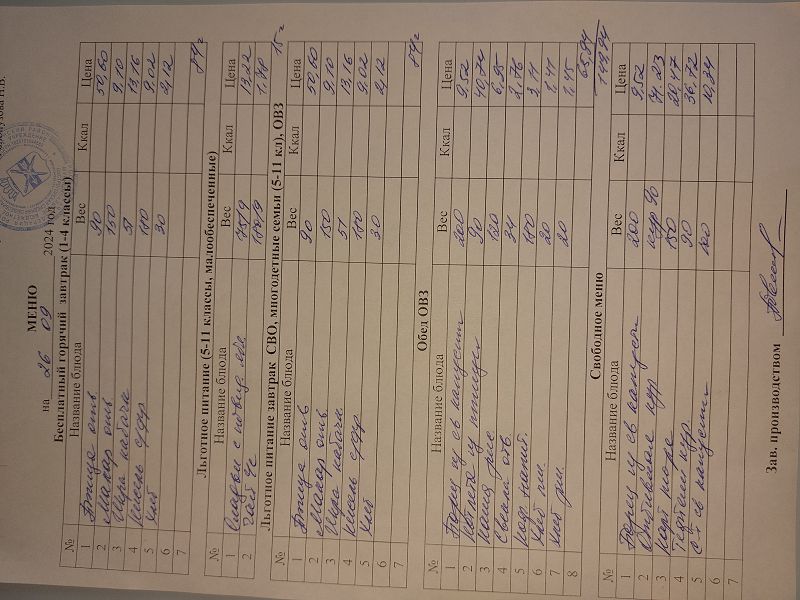 МЕНЮ
на 26 09 2024 год
Бесплатный горячий завтрак (1-4 классы)
№ Название блюда Вес Ккал Цена
1 Птица отв 90 50,60
2 Макар отв 150 9,10
3 Икра кабачк 51 13,16
4 Кисель сухр 180 9,02
5 Хлеб 30 2,12
6
7
84 г
Льготное питание (5-11 классы, малообеспеченные)
№ Название блюда Вес Ккал Цена
1 с повид 75/9 13,22
2 Чай 1,78
15 г
Льготное питание завтрак СВО, многодетные семьи (5-11 кл), ОВЗ
№ Название блюда Вес Ккал Цена
1 Птица отв 90 50,60
2 Макар отв 150 9,10
3 Икра кабачк 51 13,16
4 Кисель сухр 180 9,02
5 Хлеб 30 2,12
6
7
84 г
Обед ОВЗ
№ Название блюда Вес Ккал Цена
1 Борщ из св капусты 200 9,52
2 Котлета из птицы 90
3 Каша 6,95
4 Свекла отв 34 2,76
5 Коф напит 180
6 Хлеб пш. 20
7 Хлеб рж. 20
8
65,94
149,94
Свободное меню
№ Название блюда Вес Ккал Цена
1 Борщ из св капусты 200 9,52
2 кур 90
3 Карт пюре 150
4 Тефтели кур 90 36,72
5 С-т св капусты 100 10,34
6
7
Зав. производством